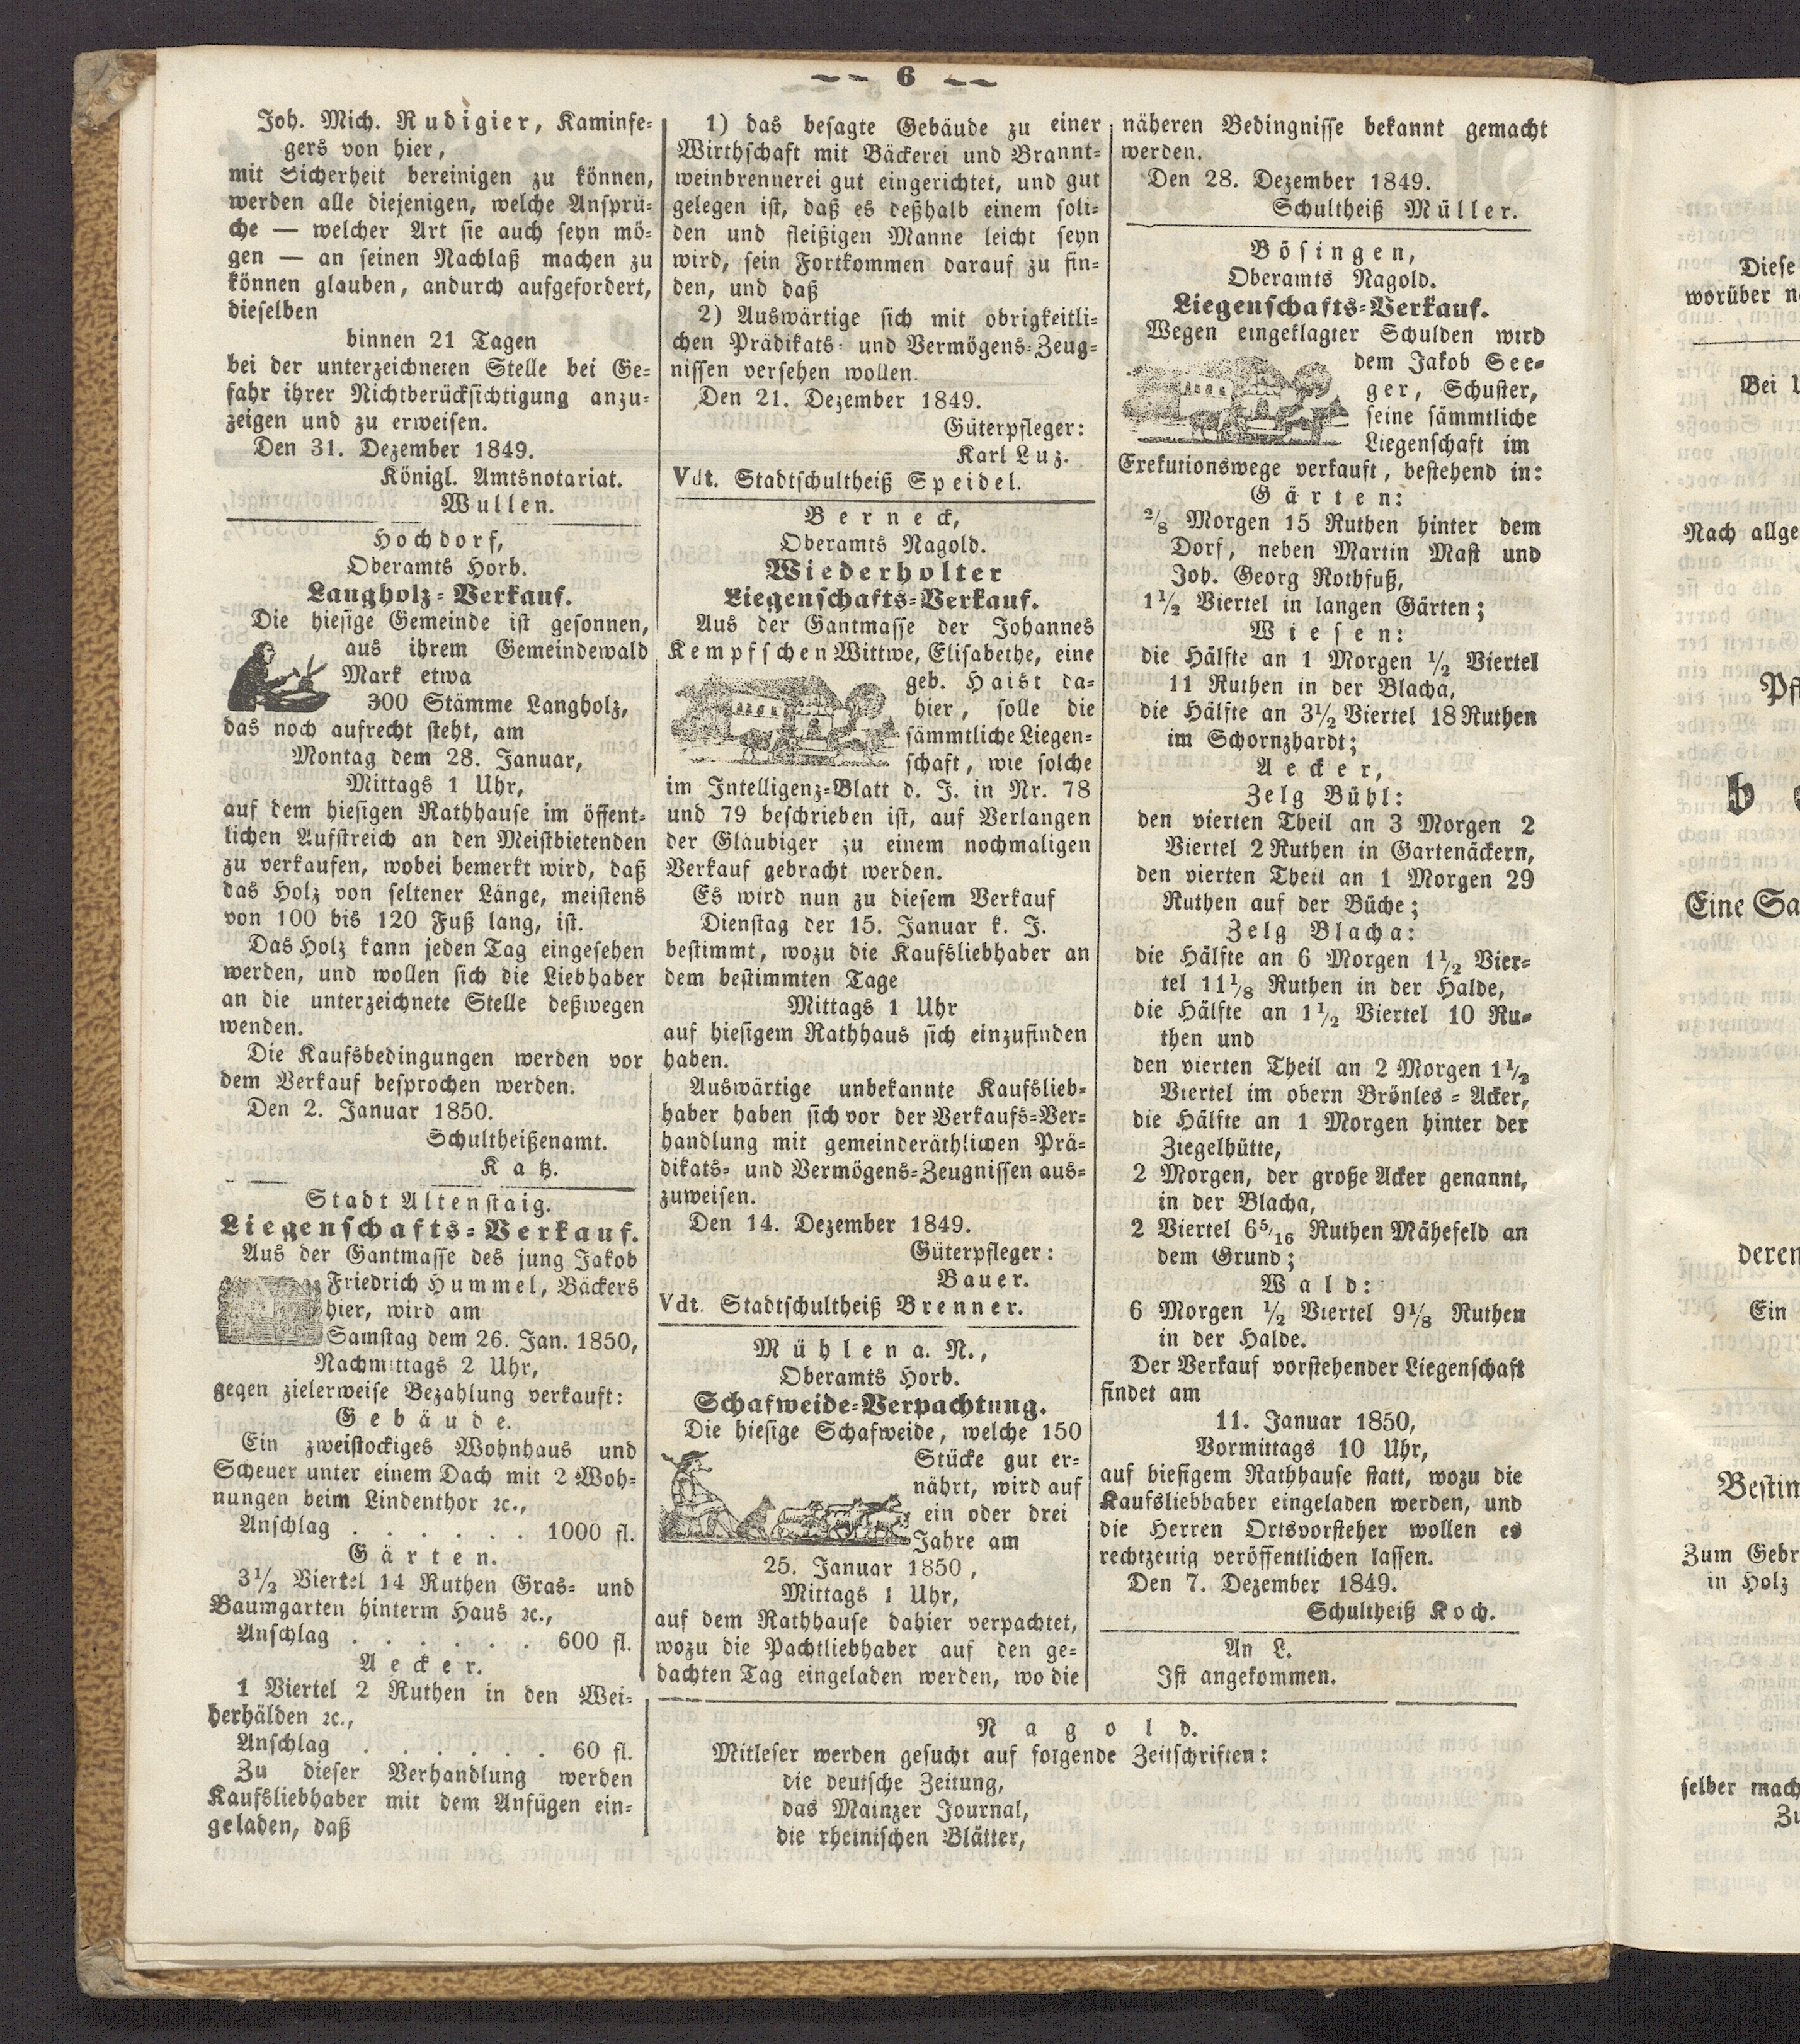 6
Joh. Mich. Rudigier, Kaminfe-
gers von hier,
mit Sicherheit bereinigen zu können,
werden alle diejenigen, welche Ansprü-
che — welcher Art sie auch seyn mö-
gen — an seinen Nachlaß machen zu
können glauben, andurch aufgefordert,
dieselben
binnen 21 Tagen
bei der unterzeichneten Stelle bei Ge-
fahr ihrer Nichtberücksichtigung anzu-
zeigen und zu erweisen.
Den 31. Dezember 1849.
Königl. Amtsnotariat.
Wullen.
Hochdorf,
Oberamts Horb.
Langholz-Verkauf.
Die hiesige Gemeinde ist gesonnen,
aus ihrem Gemeindewald
Mark etwa
300 Stämme Langholz,
das noch aufrecht steht, am
Montag dem 28. Januar,
Mittags 1 Uhr,
auf dem hiesigen Rathhause im öffent-
lichen Aufstreich an den Meistbietenden
zu verkaufen, wobei bemerkt wird, daß
das Holz von seltener Länge, meistens
von 100 bis 120 Fuß lang, ist.
Das Holz kann jeden Tag eingesehen
werden, und wollen sich die Liebhaber
an die unterzeichnete Stelle deßwegen
wenden.
Die Kaufsbedingungen werden vor
dem Verkauf besprochen werden.
Den 2. Januar 1850.
Schultheißenamt.
Katz.
Stadt Altenstaig.
Liegenschafts-Verkauf.
Aus der Gantmasse des jung Jakob
Friedrich Hummel, Bäckers
hier, wird am
Samstag dem 26. Jan. 1850,
Nachmittags 2 Uhr,
gegen zielerweise Bezahlung verkauft:
Gebäude.
Ein zweistockiges Wohnhaus und
Scheuer unter einem Dach mit 2 Woh-
nungen beim Lindenthor ꝛc.,
Anschlag . . . . . . 1000 fl.
Gärten.
3½ Viertel 14 Ruthen Gras- und
Baumgarten hinterm Haus ꝛc.,
Anschlag . . . . . . 600 fl.
Aecker.
1 Viertel 2 Ruthen in den Wei-
herhälden ꝛc.,
Anschlag . . . . . . 60 fl.
Zu dieser Verhandlung werden
Kaufsliebhaber mit dem Anfügen ein-
geladen, daß
1) das besagte Gebäude zu einer
Wirthschaft mit Bäckerei und Brannt-
weinbrennerei gut eingerichtet, und gut
gelegen ist, daß es deßhalb einem soli-
den und fleißigen Manne leicht seyn
wird, sein Fortkommen darauf zu fin-
den, und daß
2) Auswärtige sich mit obrigkeitli-
chen Prädikats- und Vermögens-Zeug-
nissen versehen wollen.
Den 21. Dezember 1849.
Güterpfleger:
Karl Luz.
Vdt. Stadtschultheiß Speidel.
Berneck,
Oberamts Nagold.
Wiederholter
Liegenschafts-Verkauf.
Aus der Gantmasse der Johannes
Kempfschen Wittwe, Elisabethe, eine
geb. Haist da-
hier, solle die
sämmtliche Liegen-
schaft, wie solche
im Intelligenz-Blatt d. J. in Nr. 78
und 79 beschrieben ist, auf Verlangen
der Gläubiger zu einem nochmaligen
Verkauf gebracht werden.
Es wird nun zu diesem Verkauf
Dienstag der 15. Januar k. J.
bestimmt, wozu die Kaufsliebhaber an
dem bestimmten Tage
Mittags 1 Uhr
auf hiesigem Rathhaus sich einzufinden
haben.
Auswärtige unbekannte Kaufslieb-
haber haben sich vor der Verkaufs-Ver-
handlung mit gemeinderäthlichen Prä-
dikats- und Vermögens-Zeugnissen aus-
zuweisen.
Den 14. Dezember 1849.
Güterpfleger:
Bauer.
Vdt. Stadtschultheiß Brenner.
Mühlen a. N.,
Oberamts Horb.
Schafweide-Verpachtung.
Die hiesige Schafweide, welche 150
Stücke gut er-
nährt, wird auf
ein oder drei
Jahre am
25. Januar 1850,
Mittags 1 Uhr,
auf dem Rathhause dahier verpachtet,
wozu die Pachtliebhaber auf den ge-
dachten Tag eingeladen werden, wo die
näheren Bedingnisse bekannt gemacht
werden.
Den 28. Dezember 1849.
Schultheiß Müller.
Bösingen,
Oberamts Nagold.
Liegenschafts-Verkauf.
Wegen eingeklagter Schulden wird
dem Jakob See-
ger, Schuster,
seine sämmtliche
Liegenschaft im
Exekutionswege verkauft, bestehend in:
Gärten:
2/8 Morgen 15 Ruthen hinter dem
Dorf, neben Martin Mast und
Joh. Georg Rothfuß,
1½ Viertel in langen Gärten;
Wiesen:
die Hälfte an 1 Morgen ½ Viertel
11 Ruthen in der Blacha,
die Hälfte an 3½ Viertel 18 Ruthen
im Schornzhardt;
Aecker,
Zelg Bühl:
den vierten Theil an 3 Morgen 2
Viertel 2 Ruthen in Gartenäckern,
den vierten Theil an 1 Morgen 29
Ruthen auf der Büche;
Zelg Blacha:
die Hälfte an 6 Morgen 1½ Vier-
tel 11⅛ Ruthen in der Halde,
die Hälfte an 1½ Viertel 10 Ru-
then und
den vierten Theil an 2 Morgen 1½
Viertel im obern Brönles-Acker,
die Hälfte an 1 Morgen hinter der
Ziegelhütte,
2 Morgen, der große Acker genannt,
in der Blacha,
2 Viertel 6 5/16 Ruthen Mähefeld an
dem Grund;
Wald:
6 Morgen ½ Viertel 9⅛ Ruthen
in der Halde.
Der Verkauf vorstehender Liegenschaft
findet am
11. Januar 1850,
Vormittags 10 Uhr,
auf hiesigem Rathhause statt, wozu die
Kaufsliebhaber eingeladen werden, und
die Herren Ortsvorsteher wollen es
rechtzeitig veröffentlichen lassen.
Den 7. Dezember 1849.
Schultheiß Koch.
An L.
Ist angekommen.
Nagold.
Mitleser werden gesucht auf folgende Zeitschriften:
die deutsche Zeitung,
das Mainzer Journal,
die rheinischen Blätter,
Diese
worüber
Bei
Nach allge
Eine Sa
deren
Ein
Bestim
Zum Gebr
in Holz
selber mach
Zu